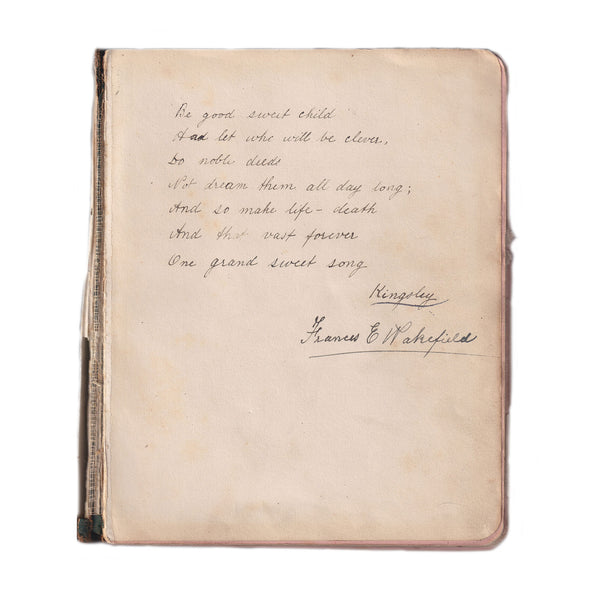 Be good sweet child
And let who will be clever,
Do noble deeds
Not dream them all day long;
And so make life - death
And that vast forever
One grand sweet song
Kingsley
Frances E Wakefield